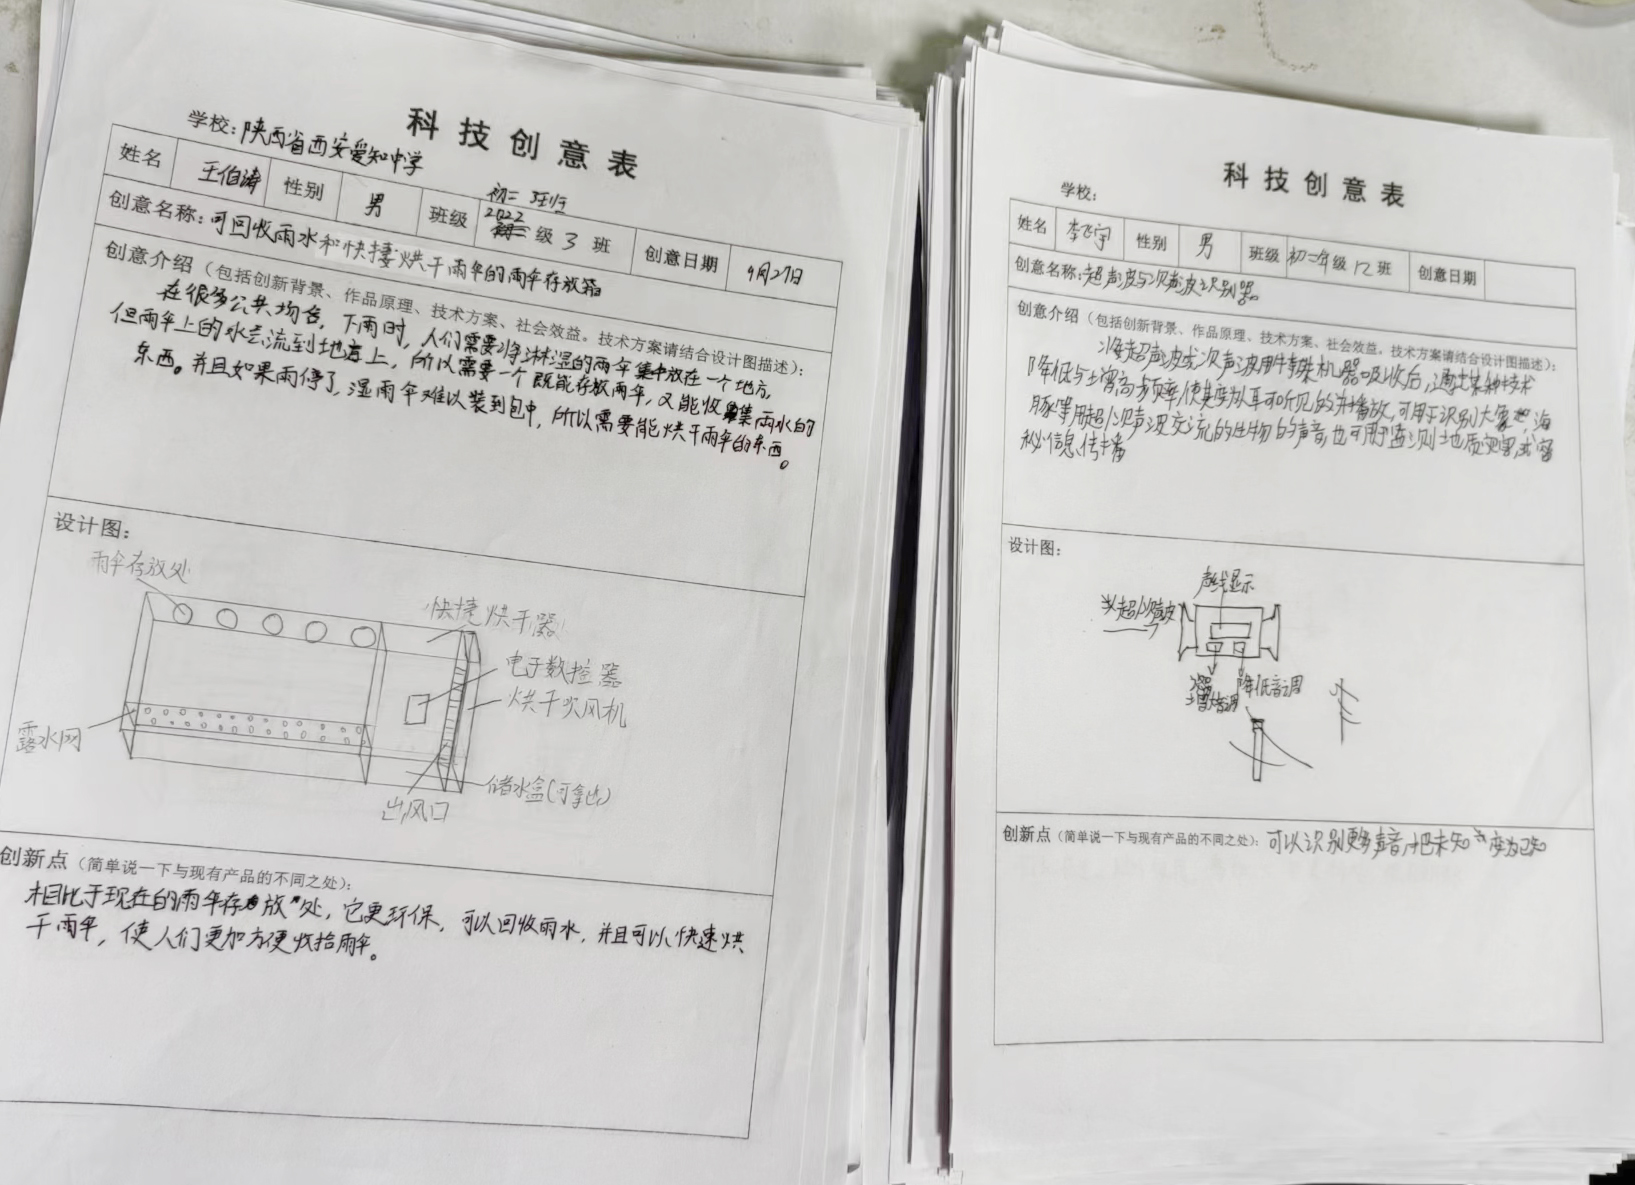 科技创意表
学校：陕西省西安爱知中学
姓名 王伯涛 性别 男 班级 2022级3班 创意日期 9月27日
创意名称：可回收雨水和快捷烘干雨伞的雨伞存放箱
创意介绍（包括创新背景、作品原理、技术方案、社会效益。技术方案请结合设计图描述）：
在很多公共场合，下雨时，人们需要将淋湿的雨伞集中放在一个地方，
但雨伞上的水会流到地上，所以需要一个既能存放雨伞，又能收集雨水的
东西。并且如果雨停了，湿雨伞难以装到包中，所以需要能烘干雨伞的东西。
设计图：
雨伞存放处
快捷烘干器
电子数控器
烘干吹风机
露水网
储水盒(可拿出)
出风口
创新点（简单说一下与现有产品的不同之处）：
相比于现在的雨伞存放处，它更环保，可以回收雨水，并且可以快速烘
干雨伞，使人们更加方便收拾雨伞。
科技创意表
学校：
姓名 李飞宇 性别 男 班级 初二年级12班 创意日期
创意名称：超声波与次声波识别器
创意介绍（包括创新背景、作品原理、技术方案、社会效益。技术方案请结合设计图描述）：
将超声波或次声波用特殊机器吸收后，通过某种技术
降低与增高频率，使其变为人耳可听见的并播放，可用于识别大象，海
豚等用超/次声波交流的生物的声音，也可用于查测地质灾害，或密
秘信息传播
设计图：
声线显示
降低音调
创新点（简单说一下与现有产品的不同之处）：可以识别更多声音，把未知变为已知